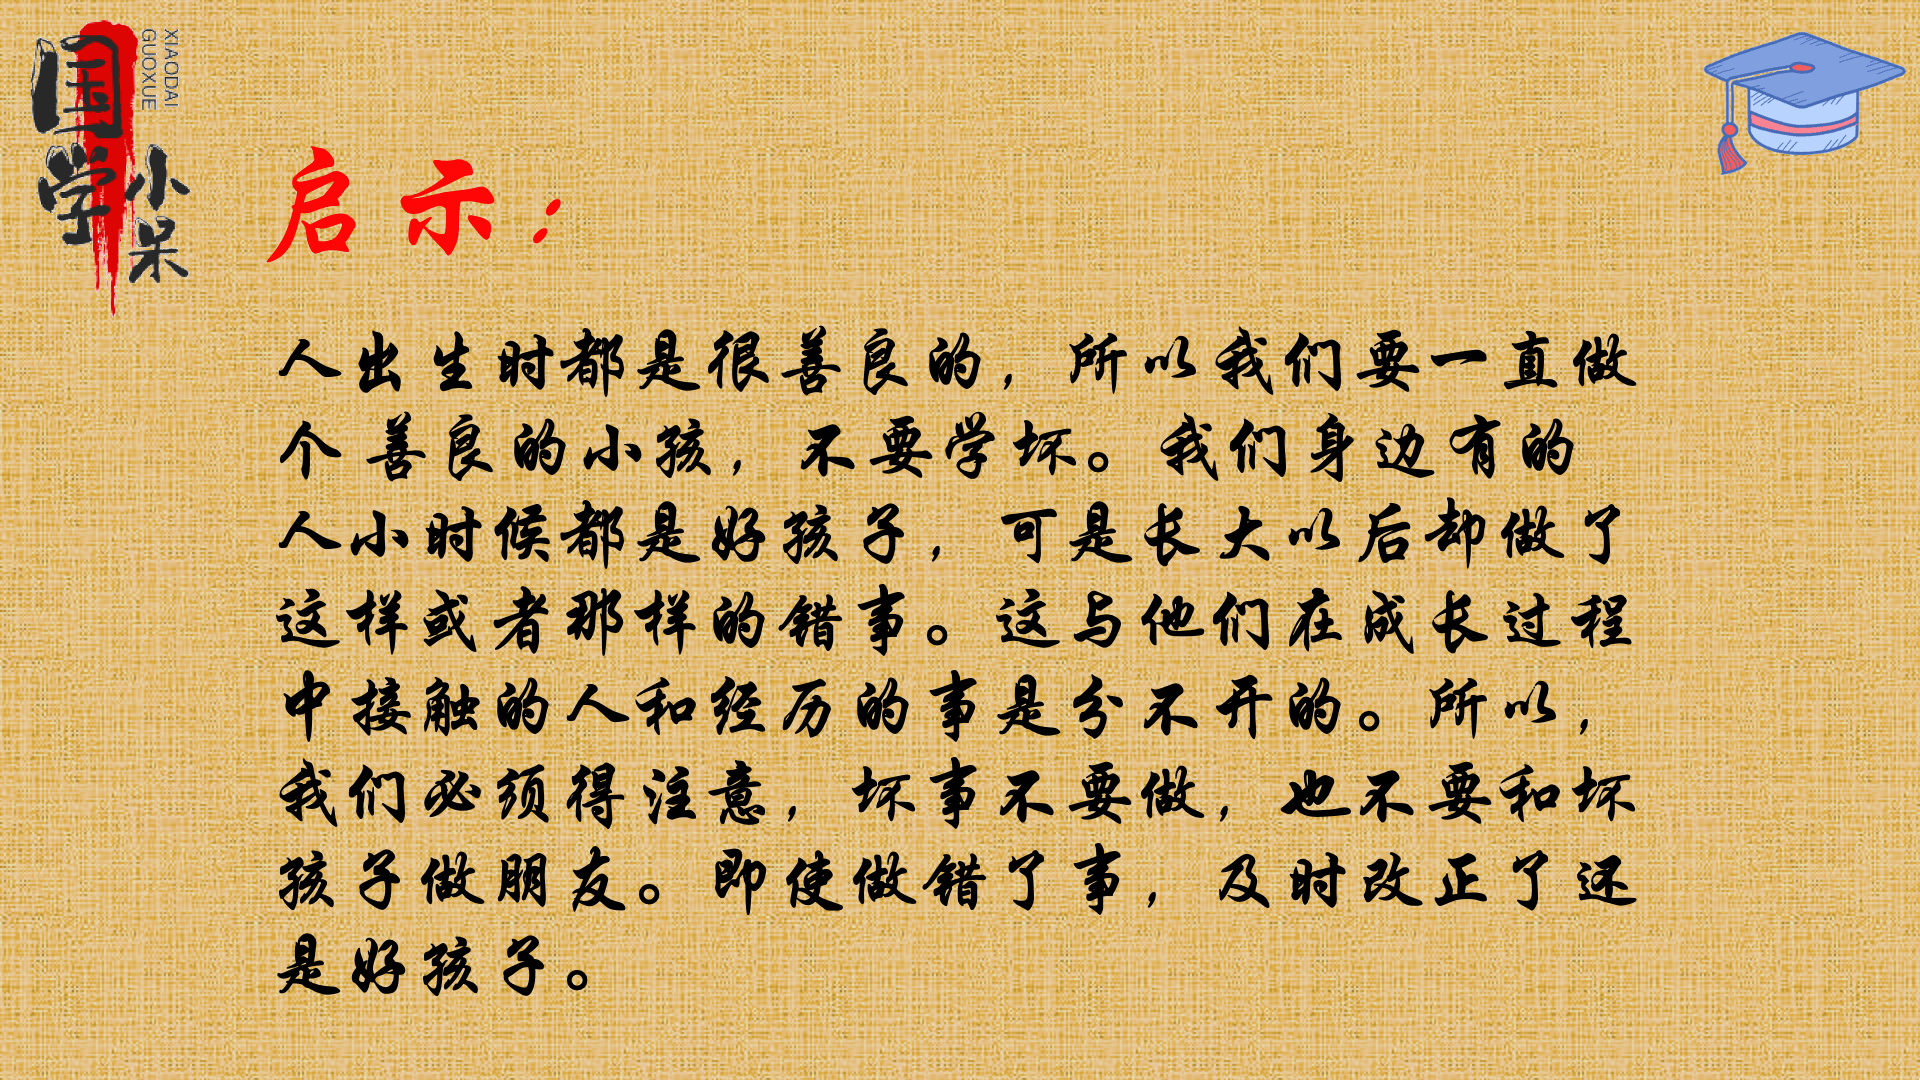 国学
小呆
XIAODAI
GUOXUE
启示：
人出生时都是很善良的，所以我们要一直做
个善良的小孩，不要学坏。我们身边有的
人小时候都是好孩子，可是长大以后却做了
这样或者那样的错事。这与他们在成长过程
中接触的人和经历的事是分不开的。所以，
我们必须得注意，坏事不要做，也不要和坏
孩子做朋友。即使做错了事，及时改正了还
是好孩子。